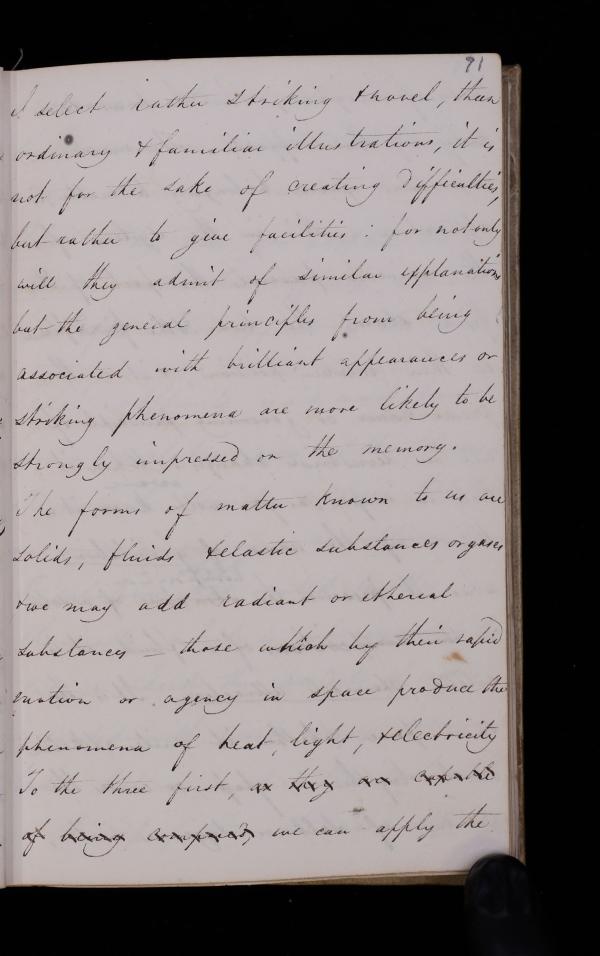 91
I select rather striking & novel, than
ordinary & familiar illustrations, it is
not for the sake of creating difficulties,
but rather to give facilities: for not only
will they admit of similar explanations
but the general principles from being
associated with brilliant appearances or
striking phenomena are more likely to be
strongly impressed on the memory.
The forms of matter known to us are
solids, fluids & elastic substances or gases
& we may add radiant or etherial
substances – those which by their rapid
motion or agency in space produce the
phenomena of heat, light, & electricity
To the three first, as they are capable
of being confined, we can apply the